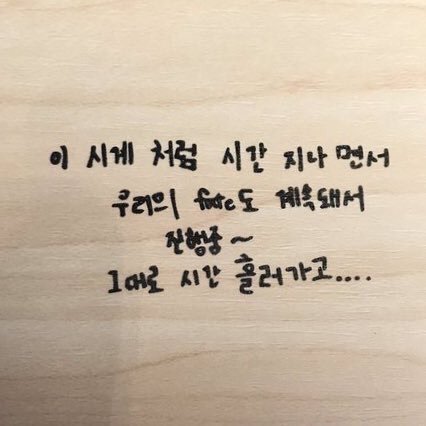 이 시게 처럼 시간 지나 면서
우리의 fate도 계속돼서
진행중~
그대로 시간 흘러가고....